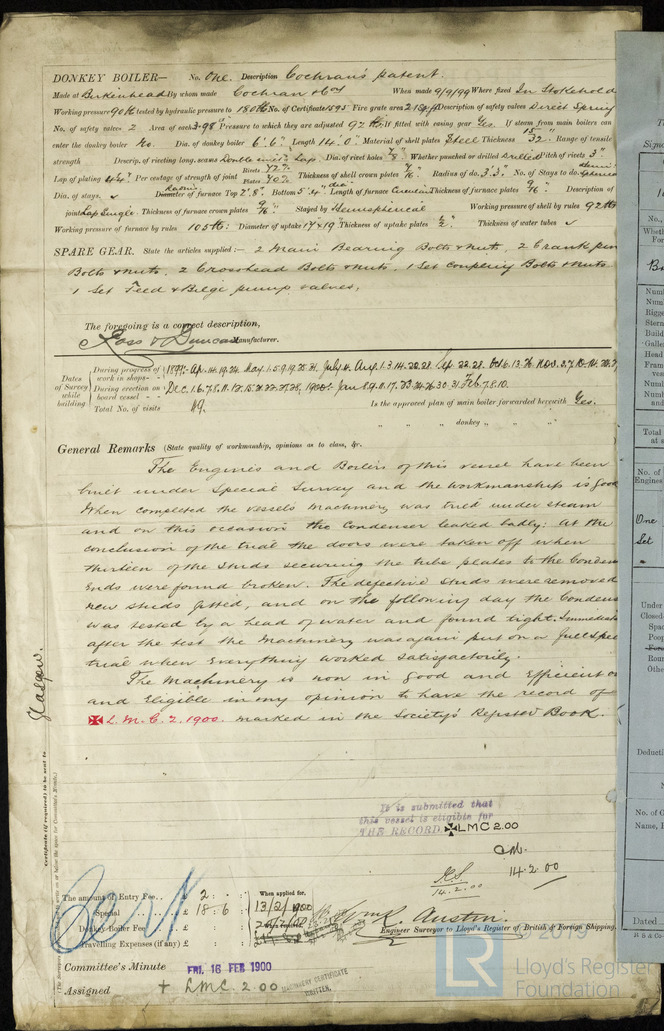 DONKEY BOILER— No. One. Description Cochran's patent.
Made at Birkenhead By whom made Cochran & Co When made 9/9/99 Where fixed In Stokehold
Working pressure 90 lb tested by hydraulic pressure to 180 lb No. of Certificate 1595 Fire grate area 21 Description of safety valves Direct Spring
No. of safety valves 2 Area of each 3.98" Pressure to which they are adjusted 92 lb If fitted with easing gear Yes. If steam from main boilers can
enter the donkey boiler No. Dia. of donkey boiler 6'.6" Length 14'.0" Material of shell plates Steel Thickness 15/32" Range of tensile
strength Descrip. of riveting long. seams Double riv. Lap. Dia. of rivet holes Whether punched or drilled Drilled Pitch of rivets 3"
Lap of plating Per centage of strength of joint Rivets Plates 70% Thickness of shell crown plates Radius of do. 3.3. No. of Stays to do.
Dia. of stays. Diameter of furnace Top 2'.8" Bottom 5'.4" dia Length of furnace Thickness of furnace plates 9/16" Description of
joint Lap Single. Thickness of furnace crown plates 9/16" Stayed by Hemispherical Working pressure of shell by rules 92 lb
Working pressure of furnace by rules 105 lb: Diameter of uptake 17 x 19 Thickness of uptake plates 1/2" Thickness of water tubes
SPARE GEAR. State the articles supplied:— 2 Main Bearing Bolts & nuts, 2 Crank pin
Bolts & nuts, 2 Crosshead Bolts & nuts, 1 Set Coupling Bolts & nuts
1 Set Feed & Belge pump valves,
The foregoing is a correct description,
Ross & Duncan Manufacturer.
Dates of Survey while building
During progress of work in shops— 1899. Apr. 14.19.24. May. 1.5.9.19.25.31. July 4. Aug. 1.3.14.22.28. Sep. 22.28. Oct 6.13.26. Nov. 2.7.10.14.
During erection on board vessel— Dec. 1.6.7.8.11. 1900. Jan 8.9.11.17. 30.31. Feb. 7.8.10.
Total No. of visits 49. Is the approved plan of main boiler forwarded herewith Yes.
" " " donkey " " "
General Remarks (State quality of workmanship, opinions as to class, &c.
The Engines and Boilers of this vessel have been
built under Special Survey and the workmanship is good
When completed the vessels Machinery was tried under steam
and on this occasion the Condenser leaked badly: at the
conclusion of the trial the doors were taken off when
thirteen of the studs securing the tube plates to the Conden
Ends were found broken. The defective studs were removed
new studs fitted, and on the following day the Condens
was tested by a head of water and found tight. Immediat
after the test the Machinery was again put on a full spee
trial when everything worked satisfactorily.
The Machinery is now in good and efficient
and Eligible in my opinion to have the record of
✠ L.M.C. 2.1900. marked in the Society's Register Book.
Glasgow.
Certificate (if required) to be sent to
It is submitted that
this vessel is eligible for
THE RECORD ✠ LMC 2.00
14.2.00
14.2.00
The amount of Entry Fee.. £ 2 : :
Special .. £ 18 : 6 :
Donkey Boiler Fee .. £ : :
Travelling Expenses (if any) £ : :
When applied for,
13/2/1900
Wm R. Austin.
Engineer Surveyor to Lloyd's Register of British & Foreign Shipping.
Committee's Minute FRI. 16 FEB 1900
Assigned + LMC. 2.00
MACHINERY CERTIFICATE
WRITTEN.
© 2019
LR
Lloyd's Register
Foundation